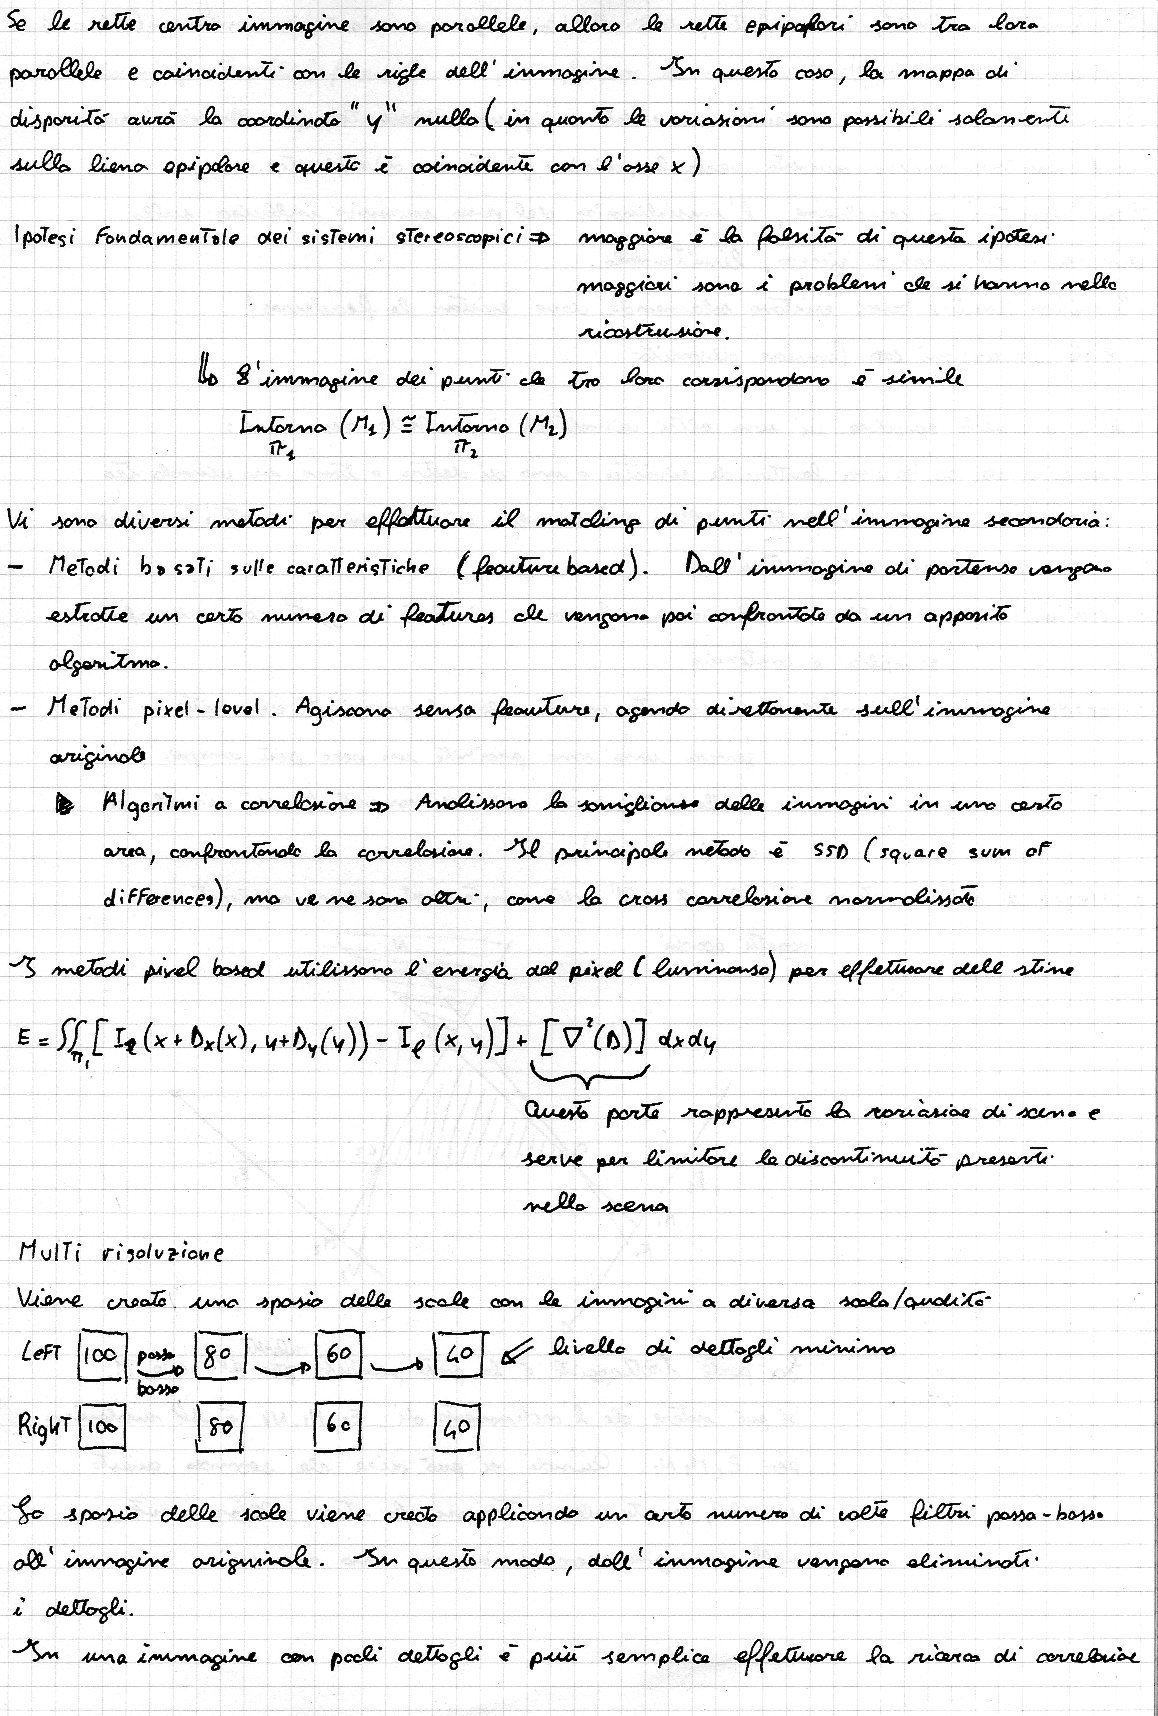 Se le rette centro immagine sono parallele, allora le rette epipolari sono tra loro
parallele e coincidenti con le righe dell'immagine. In questo caso, la mappa di
disparità avrà la coordinata "y" nulla (in quanto le variazioni sono possibili solamente
sulla liena epipolare e questa è coincidente con l'asse x)
Ipotesi fondamentale dei sistemi stereoscopici ⇒ maggiore è la falsità di questa ipotesi
maggiori sono i problemi che si hanno nella
ricostruzione.
↳ L'immagine dei punti che tra loro corrispondono è simile
Intorno (M1) ≅ Intorno (M2)
π1 π2
Vi sono diversi metodi per effettuare il matching di punti nell'immagine secondaria:
- Metodi basati sulle caratteristiche (feauture based). Dall'immagine di partenza vengono
estratte un certo numero di features che vengono poi confrontate da un apposito
algoritmo.
- Metodi pixel-level. Agiscono senza feauture, agendo direttamente sull'immagine
originale
▶ Algoritmi a correlazione ⇒ Analizzano la somiglianza delle immagini in una certa
area, confrontando la correlazione. Il principale metodo è SSD (square sum of
differences), ma ve ne sono altri, come la cross correlazione normalizzata
I metodi pixel based utilizzano l'energia del pixel (luminanza) per effetuare delle stime
E = ∬π1 [I_r(x+Dx(x), y+Dy(y)) - I_l(x,y)] + [∇²(D)] dxdy
Questa parte rappresenta la variazione di scena e
serve per limitare le discontinuità presenti
nella scena
Multi risoluzione
Viene creato uno spazio delle scale con le immagini a diversa scala/qualità
Left 100 passa basso 80 60 40 ⇐ livello di dettagli minimo
Right 100 80 60 40
Lo spazio delle scale viene creato applicando un certo numero di volte filtri passa-basso
all'immagine origninale. In questo modo, dall'immagine vengono eliminati
i dettagli.
In una immagine con pochi dettagli è più semplice effettuare la ricerca di correlazioe